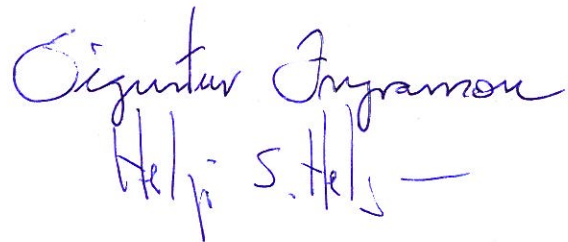 Sigurður Ingvarsson
Helgi S. Helg